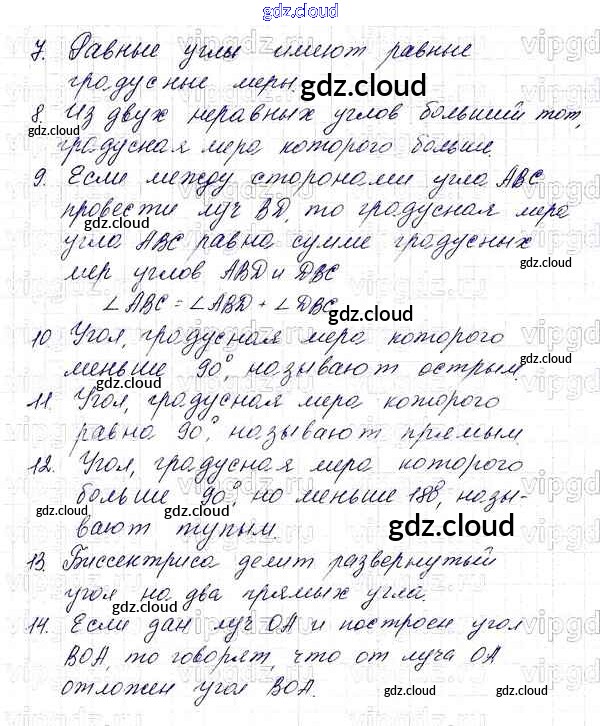 gdz.cloud
7. Равные углы имеют равные
градусные меры.
8. Из двух неравных углов больший тот,
градусная мера которого больше.
9. Если между сторонами угла ABC
провести луч BD, то градусная мера
угла ABC равна сумме градусных
мер углов ABD и DBC
∠ABC = ∠ABD + ∠DBC
10. Угол, градусная мера которого
меньше 90°, называют острым.
11. Угол, градусная мера которого
равна 90°, называют прямым
12. Угол, градусная мера которого
больше 90°, но меньше 180°, назы-
вают тупым.
13. Биссектриса делит развернутый
угол на два прямых угла.
14. Если дан луч OA и построен угол
BOA, то говорят, что от луча OA
отложен угол BOA.